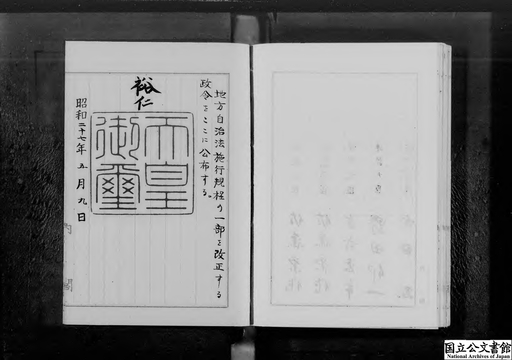 地方自治法施行規程の一部を改正する
政令をここに公布する。
裕仁
天皇
御璽
昭和二十七年五月九日
内閣
国立公文書館
National Archives of Japan